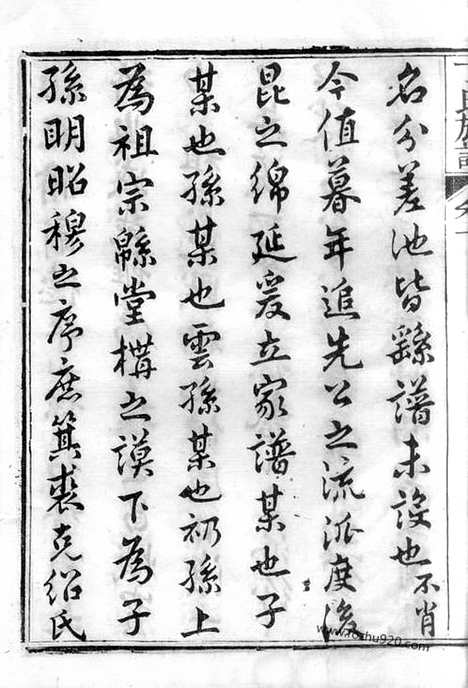 名分差池皆繇譜未設也不肖
今值暮年追先公之流派度後
昆之綿延爰立家譜某也子
某也孫某也雲孫某也礽孫上
為祖宗緜堂構之謨下為子
孫明昭穆之序庶箕裘克紹氏
www.foshu920.com